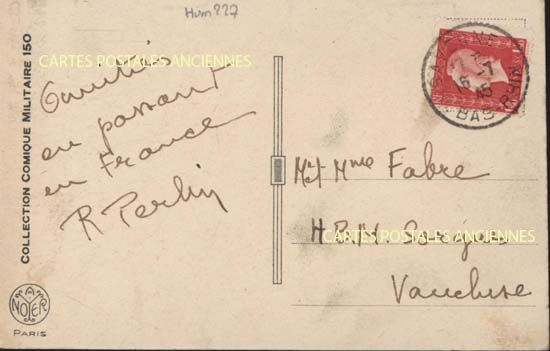 Hum 227
COLLECTION COMIQUE MILITAIRE 150
CARTES POSTALES ANCIENNES
Amitiés
en passant
en France
R Perlin
A. NOYER
PARIS
16 -7
45
BAS RHIN
M et Mme Fabre
CARTES POSTALES ANCIENNES
Vaucluse